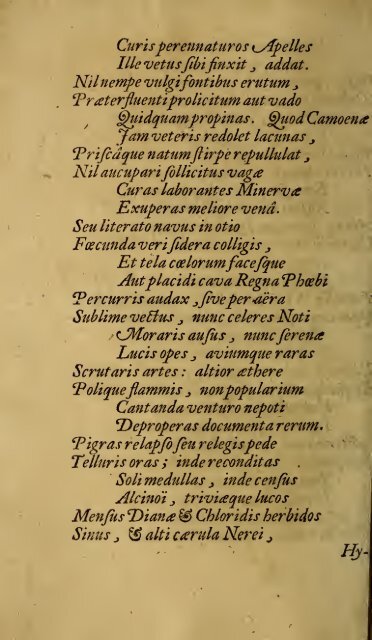 Curis perennaturos Apelles
Ille vetus sibi finxit, addat.
Nil nempe vulgi fontibus erutum,
Præterfluenti prolicitum aut vado
Quidquam propinas. Quod Camoenæ
Jam veteris redolet lacunas,
Priscâque natum stirpe repullulat,
Nil aucupari sollicitus vagæ
Curas laborantes Minervæ
Exuperas meliore venâ.
Seu literato navus in otio
Fœcunda veri sidera colligis,
Et tela cœlorum facesque
Aut placidi cava Regna Phœbi
Percurris audax, sive per aëra
Sublime vectus, nunc celeres Noti
Moraris ausus, nunc serenæ
Lucis opes, aviumque raras
Scrutaris artes: altior æthere
Polique flammis, non popularium
Cantanda venturo nepoti
Deproperas documenta rerum.
Pigras relapso seu relegis pede
Telluris oras; inde reconditas
Soli medullas, inde census
Alcinoï, triviæque lucos
Mensus Dianæ & Chloridis herbidos
Sinus, & alti cærula Nerei,
Hy-